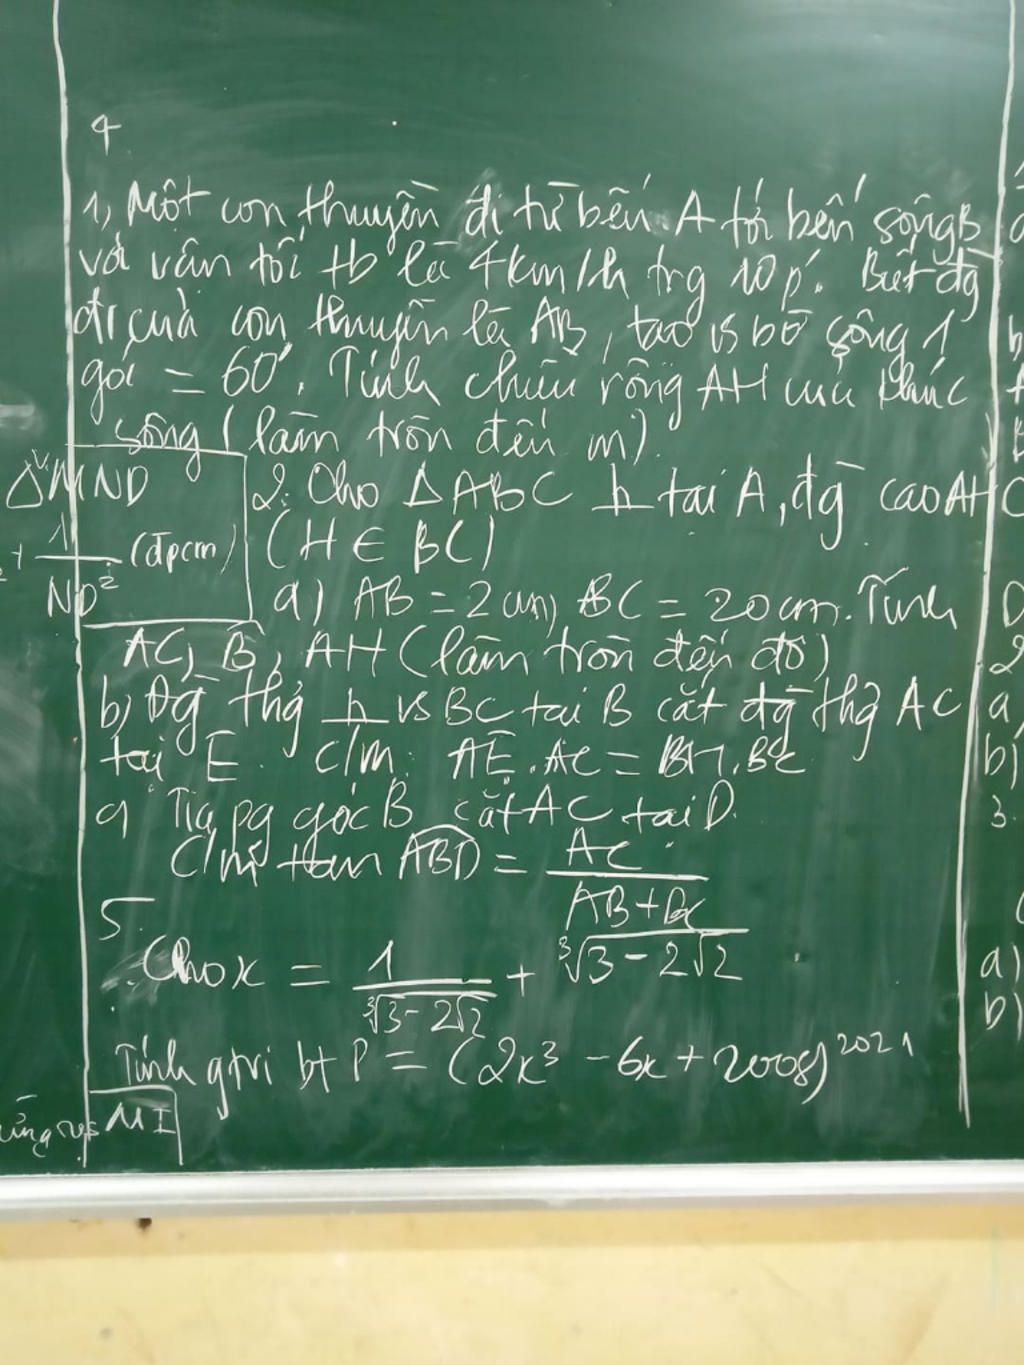 4
1, Một con thuyền đi từ bến A tới bến sông B
với vận tốc tb là 4km/h trg 10p'. Biết đg
đi của con thuyền là AB, tạo vs bờ sông 1
góc = 60°. Tính chiều rộng AH của khúc
sông (làm tròn đến m)
Δv MND
1
+ ―― (đpcm)
ND²
2. Cho ΔABC ⊥ tại A, đg cao AH
(H ∈ BC)
a) AB = 2cm, BC = 20cm. Tính
AC, B, AH (làm tròn đến độ)
b) Đg thg ⊥ vs BC tại B cắt đg thg AC
tại E. C/m: AE.AC = BH.BC
c) Tia pg góc B cắt AC tại D.
C/m tan ABD = AC / AB+BC
5.
Cho x = 1/∛3-2√2 + ∛3-2√2
Tính gtrị bt P = (2x³ - 6x + 2008)²⁰²¹
ứng vs MI